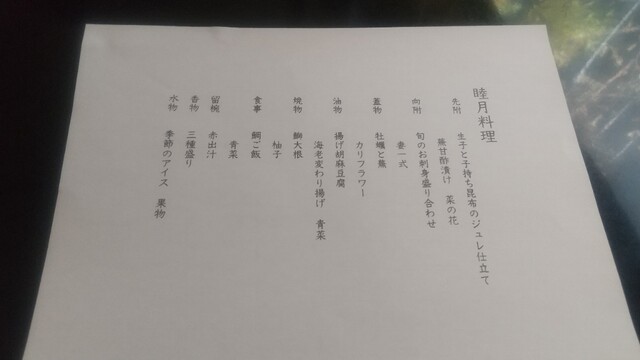 睦月料理
先附 生子と子持ち昆布のジュレ仕立て
蕪甘酢漬け 菜の花
向附 旬のお刺身盛り合わせ
妻一式
蓋物 牡蠣と蕪
カリフラワー
油物 揚げ胡麻豆腐
海老変わり揚げ 青菜
焼物 鰤大根
柚子
食事 鯛ご飯
青菜
留椀 赤出汁
香物 三種盛り
水物 季節のアイス 果物